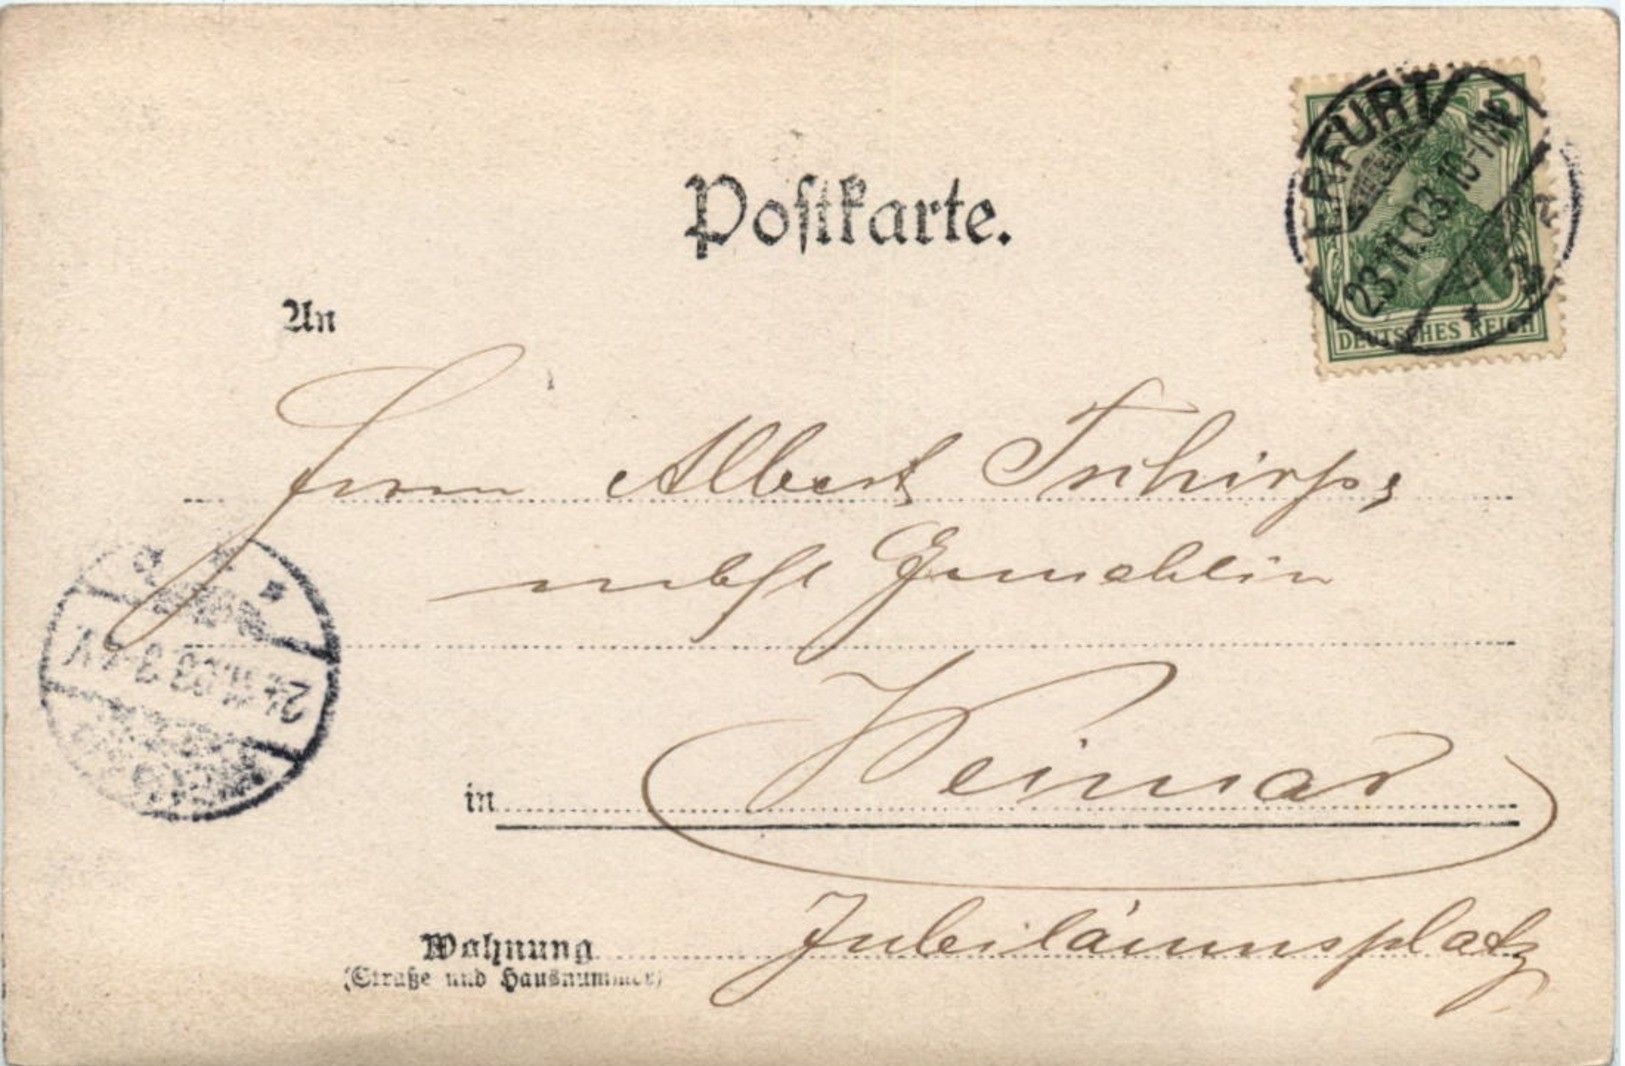 Postkarte.
5
ERFURT
23.11.03.10-11N.
* 2
DEUTSCHES REICH
An
Herrn Albert
nebst Gemahlin
24.11.03 3-4V
in Weimar
Wohnung Jubiläumsplatz
(Straße und Hausnummer)